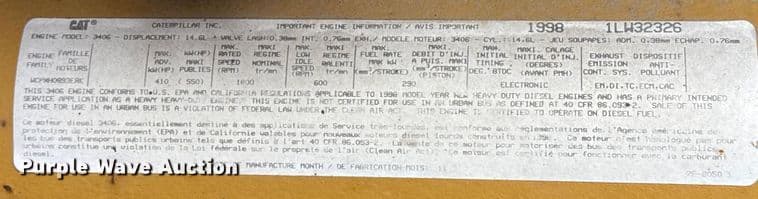 CAT CATERPILLAR INC. IMPORTANT ENGINE INFORMATION / AVIS IMPORTANT 1998 1LW32326
ENGINE MODEL: 3406 - DISPLACEMENT: 14.6L VALVE LASH: 0.38mm INT. 0.76mm EXH./ MODELE MOTEUR: 3406 - CYL.: 14.6L - JEU SOUPAPES: ADM. 0.38mm ECHAP. 0.76mm
ENGINE FAMILY FAMILLE DE MOTEURS
MAX. ADV. kW(HP) kW(HP) MAXI PUBLIS
MAX. RATED SPEED (RPM) MAXI REGIME NOMINAL tr/mn
MAX. LOW IDLE SPEED (RPM) MAXI REGIME RALENTI tr/mn
MAX. FUEL RATE MAX kW (mm³/STROKE) MAXI DEBIT D'INJ. A PUIS. MAXI (mm³/STROKE) (PISTON)
MAX. INITIAL TIMING DEG. BTDC MAXI. CALAGE INITIAL D'INJ. (DEGRES) (AVANT PMH)
EXHAUST EMISSION CONT. SYS. DISPOSITIF ANTI POLLUANT
410 (550) 1800 600 290 ELECTRONIC EM,DI,TC,ECM,CAC
THIS 3406 ENGINE CONFORMS TO U.S. EPA AND CALIFORNIA REGULATIONS APPLICABLE TO 1998 MODEL YEAR NEW HEAVY DUTY DIESEL ENGINES AND HAS A PRIMARY INTENDED
SERVICE APPLICATION AS A HEAVY HEAVY-DUTY ENGINE. THIS ENGINE IS NOT CERTIFIED FOR USE IN AN URBAN BUS AS DEFINED AT 40 CFR 86.093-2. SALE OF THIS
ENGINE FOR USE IN AN URBAN BUS IS A VIOLATION OF FEDERAL LAW UNDER THE CLEAN AIR ACT. THIS ENGINE IS CERTIFIED TO OPERATE ON DIESEL FUEL.
Ce moteur diesel 3406, essentiellement destiné à des applications de Service très lourdes, est conforme aux réglementations de l'Agence américaine de
protection de l'environnement (EPA) et de Californie valables pour nouveaux moteurs diesel lourds construits 1998. Ce moteur n'est homologué pas pour
les bus des transports publics urbains tels que définis à l'art 40 CFR 86.093-2. La vente de ce moteur pour motoriser des bus des transports publics
urbains constitue une violation de la Loi fédérale sur le propreté de l'air (Clean Air Act). Ce moteur est certifié pour fonctionner avec le carburant
diesel.
MANUFACTURE MONTH / DE FABRICATION MOIS: 11
Purple Wave Auction